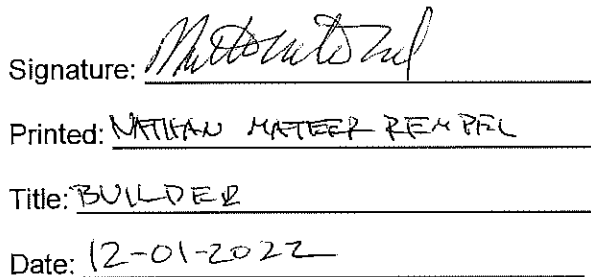 Signature:
Printed: NATHAN MATEER REMPEL
Title: BUILDER
Date: 12-01-2022